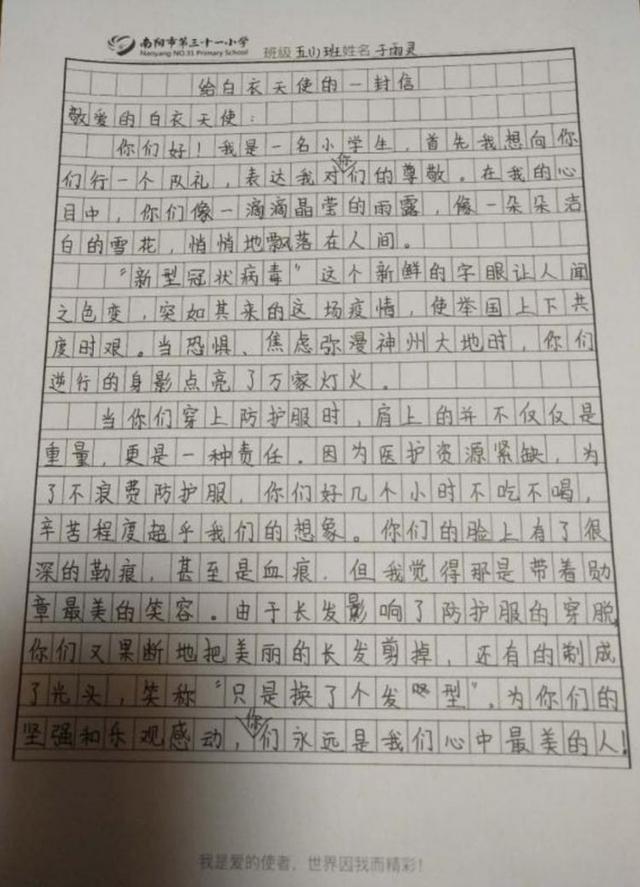 南阳市第三十一小学
Nanyang NO.31 Primary School
班级 五(1)班 姓名 于雨灵
给白衣天使的一封信
敬爱的白衣天使：
你们好！我是一名小学生，首先我想向你
们行一个队礼，表达我对你们的尊敬。在我的心
目中，你们像一滴滴晶莹的雨露，像一朵朵洁
白的雪花，悄悄地飘落在人间。
“新型冠状病毒”这个新鲜的字眼让人闻
之色变，突如其来的这场疫情，使举国上下共
度时艰。当恐惧、焦虑弥漫神州大地时，你们
逆行的身影点亮了万家灯火。
当你们穿上防护服时，肩上的并不仅仅是
重量，更是一种责任。因为医护资源紧缺，为
了不浪费防护服，你们好几个小时不吃不喝，
辛苦程度超乎我们的想象。你们的脸上有了很
深的勒痕，甚至是血痕，但我觉得那是带着勋
章最美的笑容。由于长发影响了防护服的穿脱
你们又果断地把美丽的长发剪掉，还有的制成
了光头，笑称“只是换了个发型”。为你们的
坚强和乐观感动，你们永远是我们心中最美的人！
我是爱的使者，世界因我而精彩！